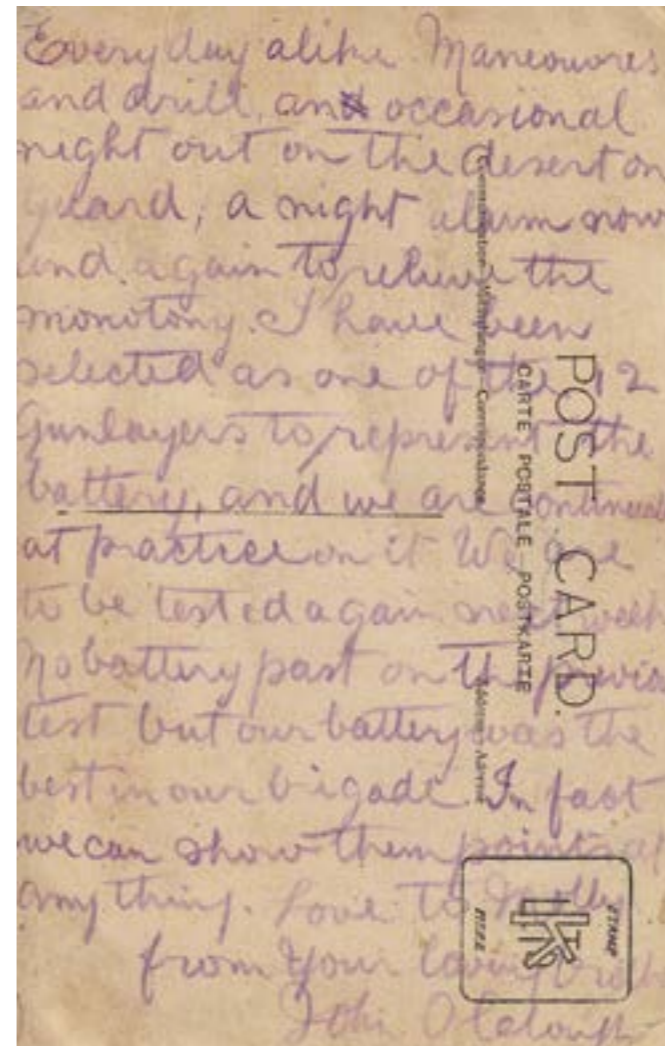 Every day alike. Maneouvres
and drill, and occasional
night out on the desert on
guard, a night alarm now
and again to relieve the
monotony. I have been
selected as one of the 12
Gunlayers to represent the
battery, and we are continual
at practice on it We are
to be tested again next week
No battery past on the previo
test but our battery was the
best in our brigade In fact
we can show them points at
any thing. Love to Molly
from your loving
John
POST CARD.
CARTE POSTALE POSTKARTE
Correspondance
STAMP
HERE